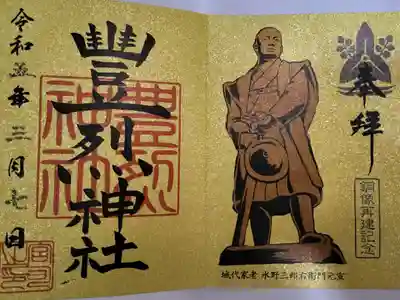 奉拝
銅像再建記念
城代家老 水野三郎右衛門元宣
豐烈神社
豊烈神社
令和五年三月七日